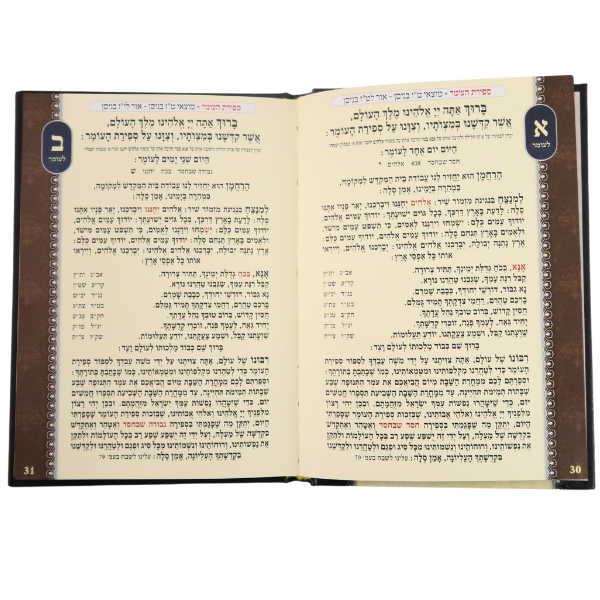 ספירת העומר • מוצאי ט"ו בניסן - אור לט"ז בניסן
א
לעומר
בָּרוּךְ אַתָּה יְיָ אֱלֹהֵינוּ מֶלֶךְ הָעוֹלָם,
אֲשֶׁר קִדְּשָׁנוּ בְּמִצְוֹתָיו, וְצִוָּנוּ עַל סְפִירַת הָעוֹמֶר:
הַיּוֹם יוֹם אֶחָד לָעוֹמֶר:
חסד שבחסד אנא אלהים י
הָרַחֲמָן הוּא יַחֲזִיר לָנוּ עֲבוֹדַת בֵּית הַמִּקְדָּשׁ לִמְקוֹמָהּ,
בִּמְהֵרָה בְיָמֵינוּ, אָמֵן סֶלָה:
לַמְנַצֵּחַ בִּנְגִינֹת מִזְמוֹר שִׁיר: אֱלֹהִים יְחָנֵּנוּ וִיבָרְכֵנוּ, יָאֵר פָּנָיו אִתָּנוּ
סֶלָה: לָדַעַת בָּאָרֶץ דַּרְכֶּךָ, בְּכָל גּוֹיִם יְשׁוּעָתֶךָ: יוֹדוּךָ עַמִּים אֱלֹהִים,
יוֹדוּךָ עַמִּים כֻּלָּם: יִשְׂמְחוּ וִירַנְּנוּ לְאֻמִּים, כִּי תִשְׁפֹּט עַמִּים מִישֹׁר,
וּלְאֻמִּים בָּאָרֶץ תַּנְחֵם סֶלָה: יוֹדוּךָ עַמִּים אֱלֹהִים, יוֹדוּךָ עַמִּים כֻּלָּם:
אֶרֶץ נָתְנָה יְבוּלָהּ, יְבָרְכֵנוּ אֱלֹהִים אֱלֹהֵינוּ: יְבָרְכֵנוּ אֱלֹהִים, וְיִירְאוּ
אוֹתוֹ כָּל אַפְסֵי אָרֶץ:
אָנָּא, בְּכֹחַ גְּדֻלַּת יְמִינְךָ, תַּתִּיר צְרוּרָה. אב"ג ית"ץ
קַבֵּל רִנַּת עַמְּךָ, שַׂגְּבֵנוּ טַהֲרֵנוּ נוֹרָא. קר"ע שט"ן
נָא גִבּוֹר, דּוֹרְשֵׁי יִחוּדְךָ, כְּבָבַת שָׁמְרֵם. נג"ד יכ"ש
בָּרְכֵם טַהֲרֵם, רַחֲמֵי צִדְקָתְךָ תָּמִיד גָּמְלֵם. בט"ר צת"ג
חֲסִין קָדוֹשׁ, בְּרוֹב טוּבְךָ נַהֵל עֲדָתֶךָ. חק"ב טנ"ע
יָחִיד גֵּאֶה, לְעַמְּךָ פְּנֵה, זוֹכְרֵי קְדֻשָּׁתֶךָ. יג"ל פז"ק
שַׁוְעָתֵנוּ קַבֵּל, וּשְׁמַע צַעֲקָתֵנוּ, יוֹדֵעַ תַּעֲלוּמוֹת. שק"ו צי"ת
בָּרוּךְ שֵׁם כְּבוֹד מַלְכוּתוֹ לְעוֹלָם וָעֶד:
רִבּוֹנוֹ שֶׁל עוֹלָם, אַתָּה צִוִּיתָנוּ עַל יְדֵי מֹשֶׁה עַבְדֶּךָ לִסְפּוֹר סְפִירַת
הָעוֹמֶר כְּדֵי לְטַהֲרֵנוּ מִקְּלִפּוֹתֵינוּ וּמִטֻּמְאוֹתֵינוּ, כְּמוֹ שֶׁכָּתַבְתָּ בְּתוֹרָתֶךָ:
וּסְפַרְתֶּם לָכֶם מִמָּחֳרַת הַשַּׁבָּת מִיּוֹם הֲבִיאֲכֶם אֶת עֹמֶר הַתְּנוּפָה שֶׁבַע
שַׁבָּתוֹת תְּמִימֹת תִּהְיֶינָה, עַד מִמָּחֳרַת הַשַּׁבָּת הַשְּׁבִיעִת תִּסְפְּרוּ חֲמִשִּׁים
יוֹם, כְּדֵי שֶׁיִּטָּהֲרוּ נַפְשׁוֹת עַמְּךָ יִשְׂרָאֵל מִזֻּהֲמָתָם, וּבְכֵן יְהִי רָצוֹן
מִלְּפָנֶיךָ יְיָ אֱלֹהֵינוּ וֵאלֹהֵי אֲבוֹתֵינוּ, שֶׁבִּזְכוּת סְפִירַת הָעוֹמֶר שֶׁסָּפַרְתִּי
הַיּוֹם, יְתֻקַּן מַה שֶּׁפָּגַמְתִּי בִּסְפִירָה חסד שבחסד וְאֶטָּהֵר וְאֶתְקַדֵּשׁ
בִּקְדֻשָּׁה שֶׁל מַעְלָה, וְעַל יְדֵי זֶה יֻשְׁפַּע שֶׁפַע רַב בְּכָל הָעוֹלָמוֹת וּלְתַקֵּן
אֶת נַפְשׁוֹתֵינוּ, וְרוּחוֹתֵינוּ, וְנִשְׁמוֹתֵינוּ מִכָּל סִיג וּפְגַם וּלְטַהֲרֵנוּ וּלְקַדְּשֵׁנוּ
בִּקְדֻשָּׁתְךָ הָעֶלְיוֹנָה, אָמֵן סֶלָה: עלינו לשבח בעמ' 79
30
ספירת העומר • מוצאי ט"ז בניסן - אור לי"ז בניסן
ב
לעומר
בָּרוּךְ אַתָּה יְיָ אֱלֹהֵינוּ מֶלֶךְ הָעוֹלָם,
אֲשֶׁר קִדְּשָׁנוּ בְּמִצְוֹתָיו, וְצִוָּנוּ עַל סְפִירַת הָעוֹמֶר:
הַיּוֹם שְׁנֵי יָמִים לָעוֹמֶר:
גבורה שבחסד בכח יחננו ש
הָרַחֲמָן הוּא יַחֲזִיר לָנוּ עֲבוֹדַת בֵּית הַמִּקְדָּשׁ לִמְקוֹמָהּ,
בִּמְהֵרָה בְיָמֵינוּ, אָמֵן סֶלָה:
לַמְנַצֵּחַ בִּנְגִינֹת מִזְמוֹר שִׁיר: אֱלֹהִים יְחָנֵּנוּ וִיבָרְכֵנוּ, יָאֵר פָּנָיו אִתָּנוּ
סֶלָה: לָדַעַת בָּאָרֶץ דַּרְכֶּךָ, בְּכָל גּוֹיִם יְשׁוּעָתֶךָ: יוֹדוּךָ עַמִּים אֱלֹהִים,
יוֹדוּךָ עַמִּים כֻּלָּם: יִשְׂמְחוּ וִירַנְּנוּ לְאֻמִּים, כִּי תִשְׁפֹּט עַמִּים מִישֹׁר,
וּלְאֻמִּים בָּאָרֶץ תַּנְחֵם סֶלָה: יוֹדוּךָ עַמִּים אֱלֹהִים, יוֹדוּךָ עַמִּים כֻּלָּם:
אֶרֶץ נָתְנָה יְבוּלָהּ, יְבָרְכֵנוּ אֱלֹהִים אֱלֹהֵינוּ: יְבָרְכֵנוּ אֱלֹהִים, וְיִירְאוּ
אוֹתוֹ כָּל אַפְסֵי אָרֶץ:
אָנָּא, בְּכֹחַ גְּדֻלַּת יְמִינְךָ, תַּתִּיר צְרוּרָה. אב"ג ית"ץ
קַבֵּל רִנַּת עַמְּךָ, שַׂגְּבֵנוּ טַהֲרֵנוּ נוֹרָא. קר"ע שט"ן
נָא גִבּוֹר, דּוֹרְשֵׁי יִחוּדְךָ, כְּבָבַת שָׁמְרֵם. נג"ד יכ"ש
בָּרְכֵם טַהֲרֵם, רַחֲמֵי צִדְקָתְךָ תָּמִיד גָּמְלֵם. בט"ר צת"ג
חֲסִין קָדוֹשׁ, בְּרוֹב טוּבְךָ נַהֵל עֲדָתֶךָ. חק"ב טנ"ע
יָחִיד גֵּאֶה, לְעַמְּךָ פְּנֵה, זוֹכְרֵי קְדֻשָּׁתֶךָ. יג"ל פז"ק
שַׁוְעָתֵנוּ קַבֵּל, וּשְׁמַע צַעֲקָתֵנוּ, יוֹדֵעַ תַּעֲלוּמוֹת. שק"ו צי"ת
בָּרוּךְ שֵׁם כְּבוֹד מַלְכוּתוֹ לְעוֹלָם וָעֶד:
רִבּוֹנוֹ שֶׁל עוֹלָם, אַתָּה צִוִּיתָנוּ עַל יְדֵי מֹשֶׁה עַבְדֶּךָ לִסְפּוֹר סְפִירַת
הָעוֹמֶר כְּדֵי לְטַהֲרֵנוּ מִקְּלִפּוֹתֵינוּ וּמִטֻּמְאוֹתֵינוּ, כְּמוֹ שֶׁכָּתַבְתָּ בְּתוֹרָתֶךָ:
וּסְפַרְתֶּם לָכֶם מִמָּחֳרַת הַשַּׁבָּת מִיּוֹם הֲבִיאֲכֶם אֶת עֹמֶר הַתְּנוּפָה שֶׁבַע
שַׁבָּתוֹת תְּמִימֹת תִּהְיֶינָה, עַד מִמָּחֳרַת הַשַּׁבָּת הַשְּׁבִיעִת תִּסְפְּרוּ חֲמִשִּׁים
יוֹם, כְּדֵי שֶׁיִּטָּהֲרוּ נַפְשׁוֹת עַמְּךָ יִשְׂרָאֵל מִזֻּהֲמָתָם, וּבְכֵן יְהִי רָצוֹן
מִלְּפָנֶיךָ יְיָ אֱלֹהֵינוּ וֵאלֹהֵי אֲבוֹתֵינוּ, שֶׁבִּזְכוּת סְפִירַת הָעוֹמֶר שֶׁסָּפַרְתִּי
הַיּוֹם, יְתֻקַּן מַה שֶּׁפָּגַמְתִּי בִּסְפִירָה גבורה שבחסד וְאֶטָּהֵר וְאֶתְקַדֵּשׁ
בִּקְדֻשָּׁה שֶׁל מַעְלָה, וְעַל יְדֵי זֶה יֻשְׁפַּע שֶׁפַע רַב בְּכָל הָעוֹלָמוֹת וּלְתַקֵּן
אֶת נַפְשׁוֹתֵינוּ, וְרוּחוֹתֵינוּ, וְנִשְׁמוֹתֵינוּ מִכָּל סִיג וּפְגַם וּלְטַהֲרֵנוּ וּלְקַדְּשֵׁנוּ
בִּקְדֻשָּׁתְךָ הָעֶלְיוֹנָה, אָמֵן סֶלָה: עלינו לשבח בעמ' 79
31